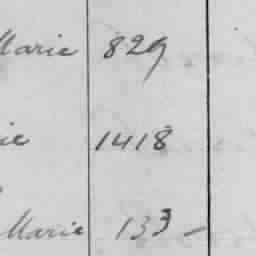 Marie 829
ie 1418
Marie 133 -